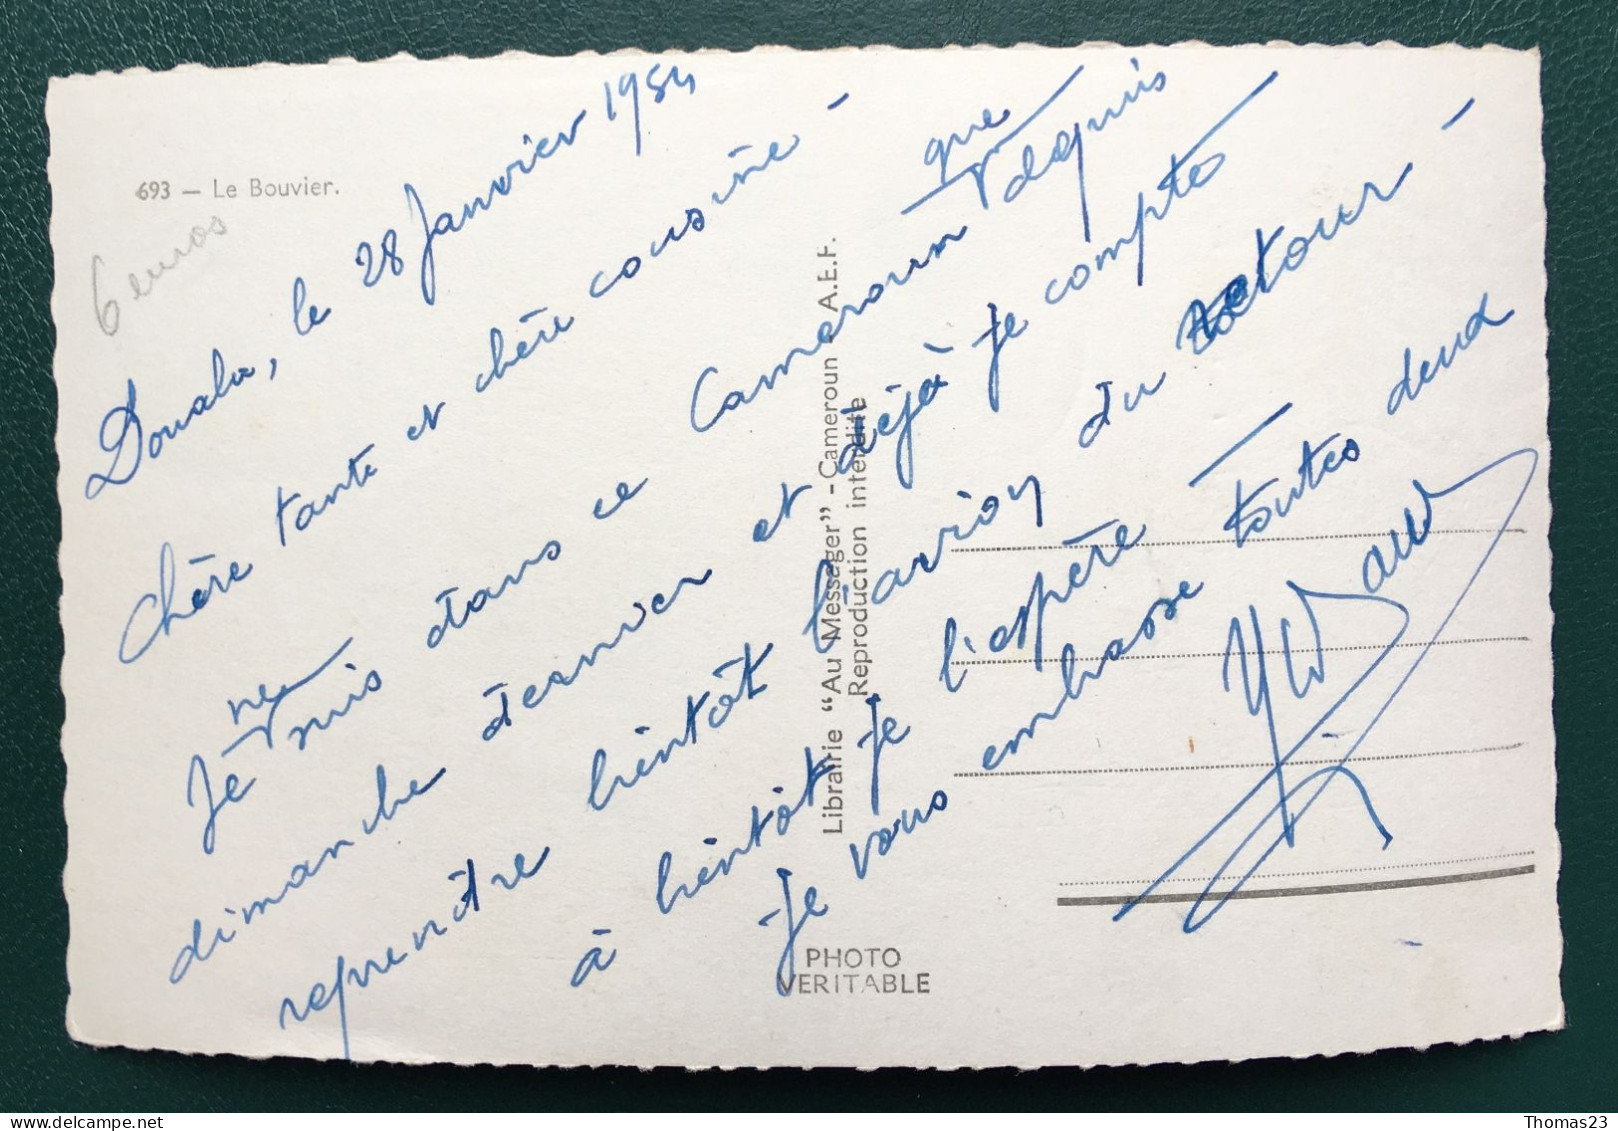 693 — Le Bouvier.
6 euros
Douala, le 28 Janvier 1954
Chère tante et chère cousine -
Je ne suis dans ce Cameroun que depuis
dimanche dernier et déjà je compte
reprendre bientôt l'avion du retour -
à bientôt je l'espère toutes deux
Je vous embrasse
Librairie “Au Messager” - Cameroun - A.E.F.
Reproduction interdite
PHOTO
VERITABLE
Thomas23